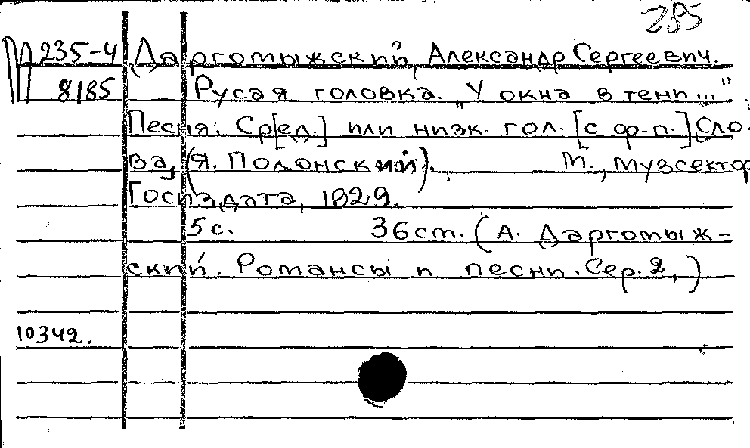 285
П 235-4 Даргомыжский, Александр Сергеевич.
8185 Русая головка. "У окна в тени..."
Песня. Ср[ед.] или низк. гол. [с ф-п.] Сло-
ва, (Я. Полонский). М., Музсектор
Госиздата, 1929.
5с. 36см. (А. Даргомыж-
ский. Романсы и песни. Сер. 2,)
10342.